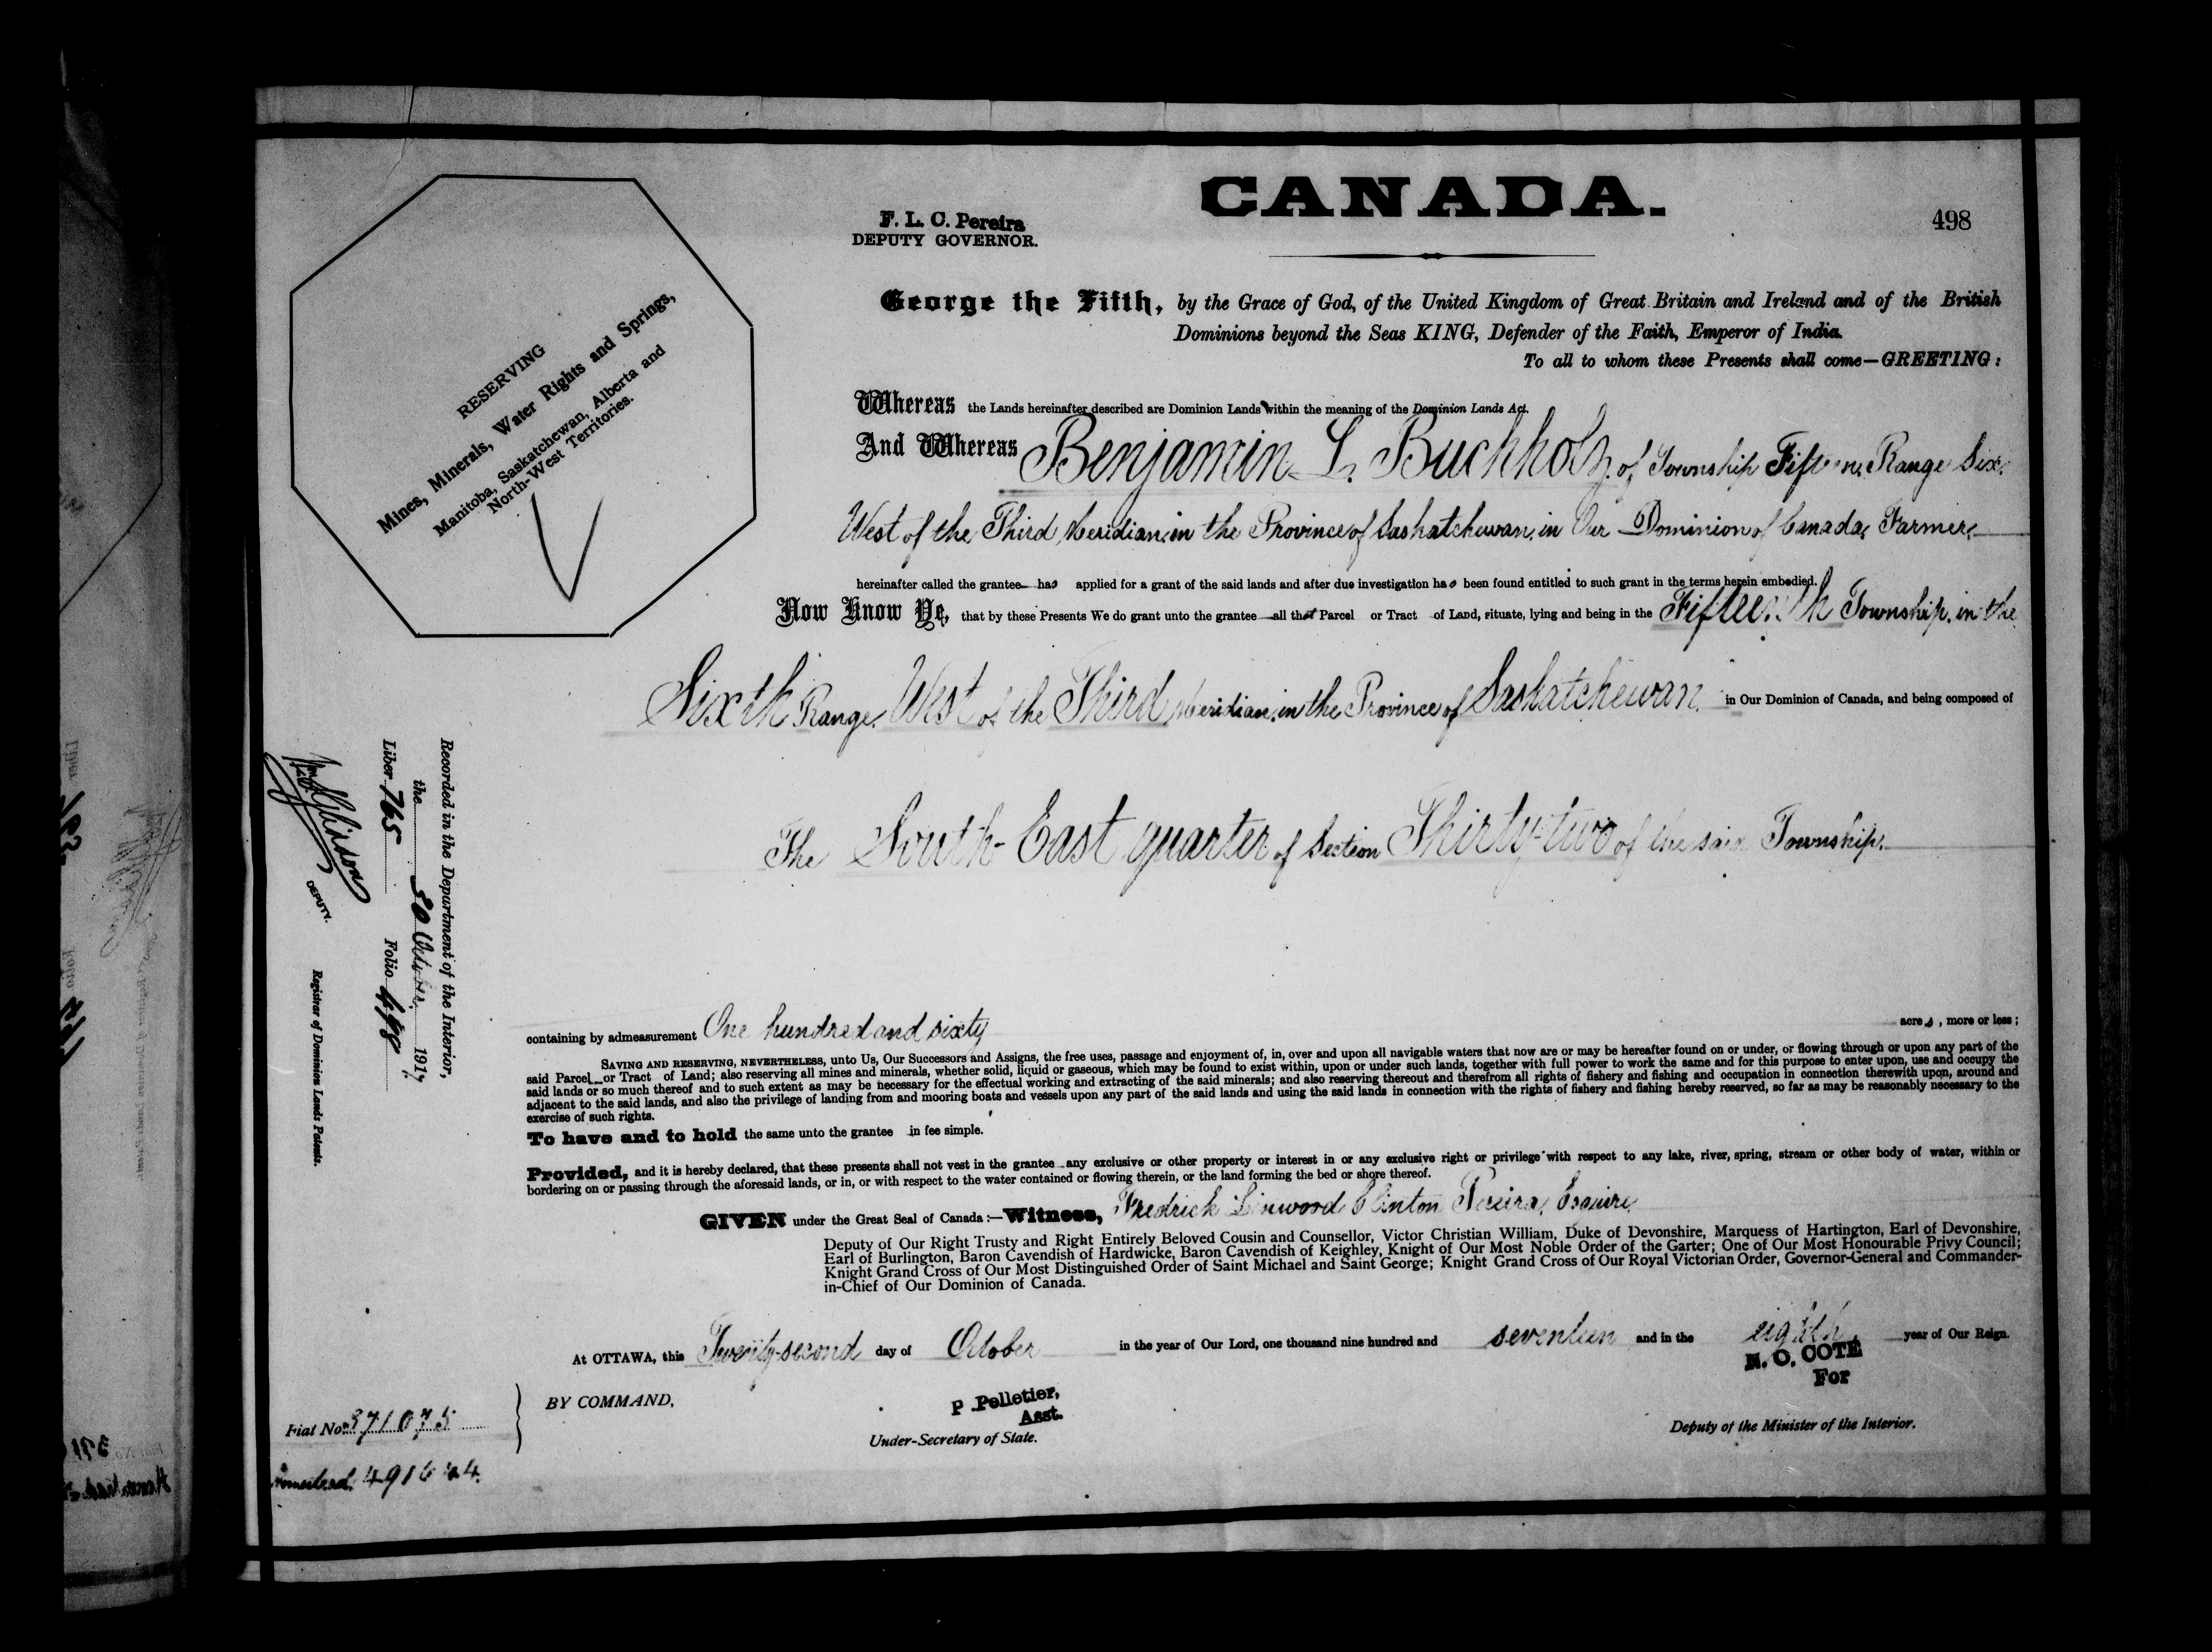 CANADA.
F. L. C. Pereira
DEPUTY GOVERNOR.
498
RESERVING
Mines, Minerals, Water Rights and Springs,
Manitoba, Saskatchewan, Alberta and
North-West Territories.
George the Fifth, by the Grace of God, of the United Kingdom of Great Britain and Ireland and of the British
Dominions beyond the Seas KING, Defender of the Faith, Emperor of India.
To all to whom these Presents shall come—GREETING:
Whereas the Lands hereinafter described are Dominion Lands within the meaning of the Dominion Lands Act.
And Whereas Benjamin L. Buchholz, of Township Fifteen, Range Six,
West of the Third Meridian, in the Province of Saskatchewan, in Our Dominion of Canada, Farmer,
hereinafter called the grantee has applied for a grant of the said lands and after due investigation has been found entitled to such grant in the terms herein embodied.
Now Know Ye, that by these Presents We do grant unto the grantee all that Parcel or Tract of Land, situate, lying and being in the Fifteenth Township, in the
Sixth Range, West of the Third Meridian, in the Province of Saskatchewan, in Our Dominion of Canada, and being composed of
The South-East quarter of Section Thirty-two of the said Township,
containing by admeasurement One hundred and sixty acres, more or less;
SAVING AND RESERVING, NEVERTHELESS, unto Us, Our Successors and Assigns, the free uses, passage and enjoyment of, in, over and upon all navigable waters that now are or may be hereafter found on or under, or flowing through or upon any part of the
said Parcel or Tract of Land; also reserving all mines and minerals, whether solid, liquid or gaseous, which may be found to exist within, upon or under such lands, together with full power to work the same and for this purpose to enter upon, use and occupy the
said lands or so much thereof and to such extent as may be necessary for the effectual working and extracting of the said minerals; and also reserving thereout and therefrom all rights of fishery and fishing and occupation in connection therewith upon, around and
adjacent to the said lands, and also the privilege of landing from and mooring boats and vessels upon any part of the said lands and using the said lands in connection with the rights of fishery and fishing hereby reserved, so far as may be reasonably necessary to the
exercise of such rights.
To have and to hold the same unto the grantee in fee simple.
Provided, and it is hereby declared, that these presents shall not vest in the grantee any exclusive or other property or interest in or any exclusive right or privilege with respect to any lake, river, spring, stream or other body of water, within or
bordering on or passing through the aforesaid lands, or in, or with respect to the water contained or flowing therein, or the land forming the bed or shore thereof.
GIVEN under the Great Seal of Canada:—Witness, Fredrick Linwood Clinton Pereira, Esquire,
Deputy of Our Right Trusty and Right Entirely Beloved Cousin and Counsellor, Victor Christian William, Duke of Devonshire, Marquess of Hartington, Earl of Devonshire,
Earl of Burlington, Baron Cavendish of Hardwicke, Baron Cavendish of Keighley, Knight of Our Most Noble Order of the Garter; One of Our Most Honourable Privy Council;
Knight Grand Cross of Our Most Distinguished Order of Saint Michael and Saint George; Knight Grand Cross of Our Royal Victorian Order, Governor-General and Commander-
in-Chief of Our Dominion of Canada.
At OTTAWA, this Twenty-second day of October in the year of Our Lord, one thousand nine hundred and seventeen and in the eighth year of Our Reign.
BY COMMAND,
P. Pelletier,
Asst.
Under-Secretary of State.
N. O. COTE
For
Deputy of the Minister of the Interior.
Fiat No. 371075
Homestead
Recorded in the Department of the Interior,
the 30 October 1917
Liber 765 Folio 498
DEPUTY.
Registrar of Dominion Lands Patents.